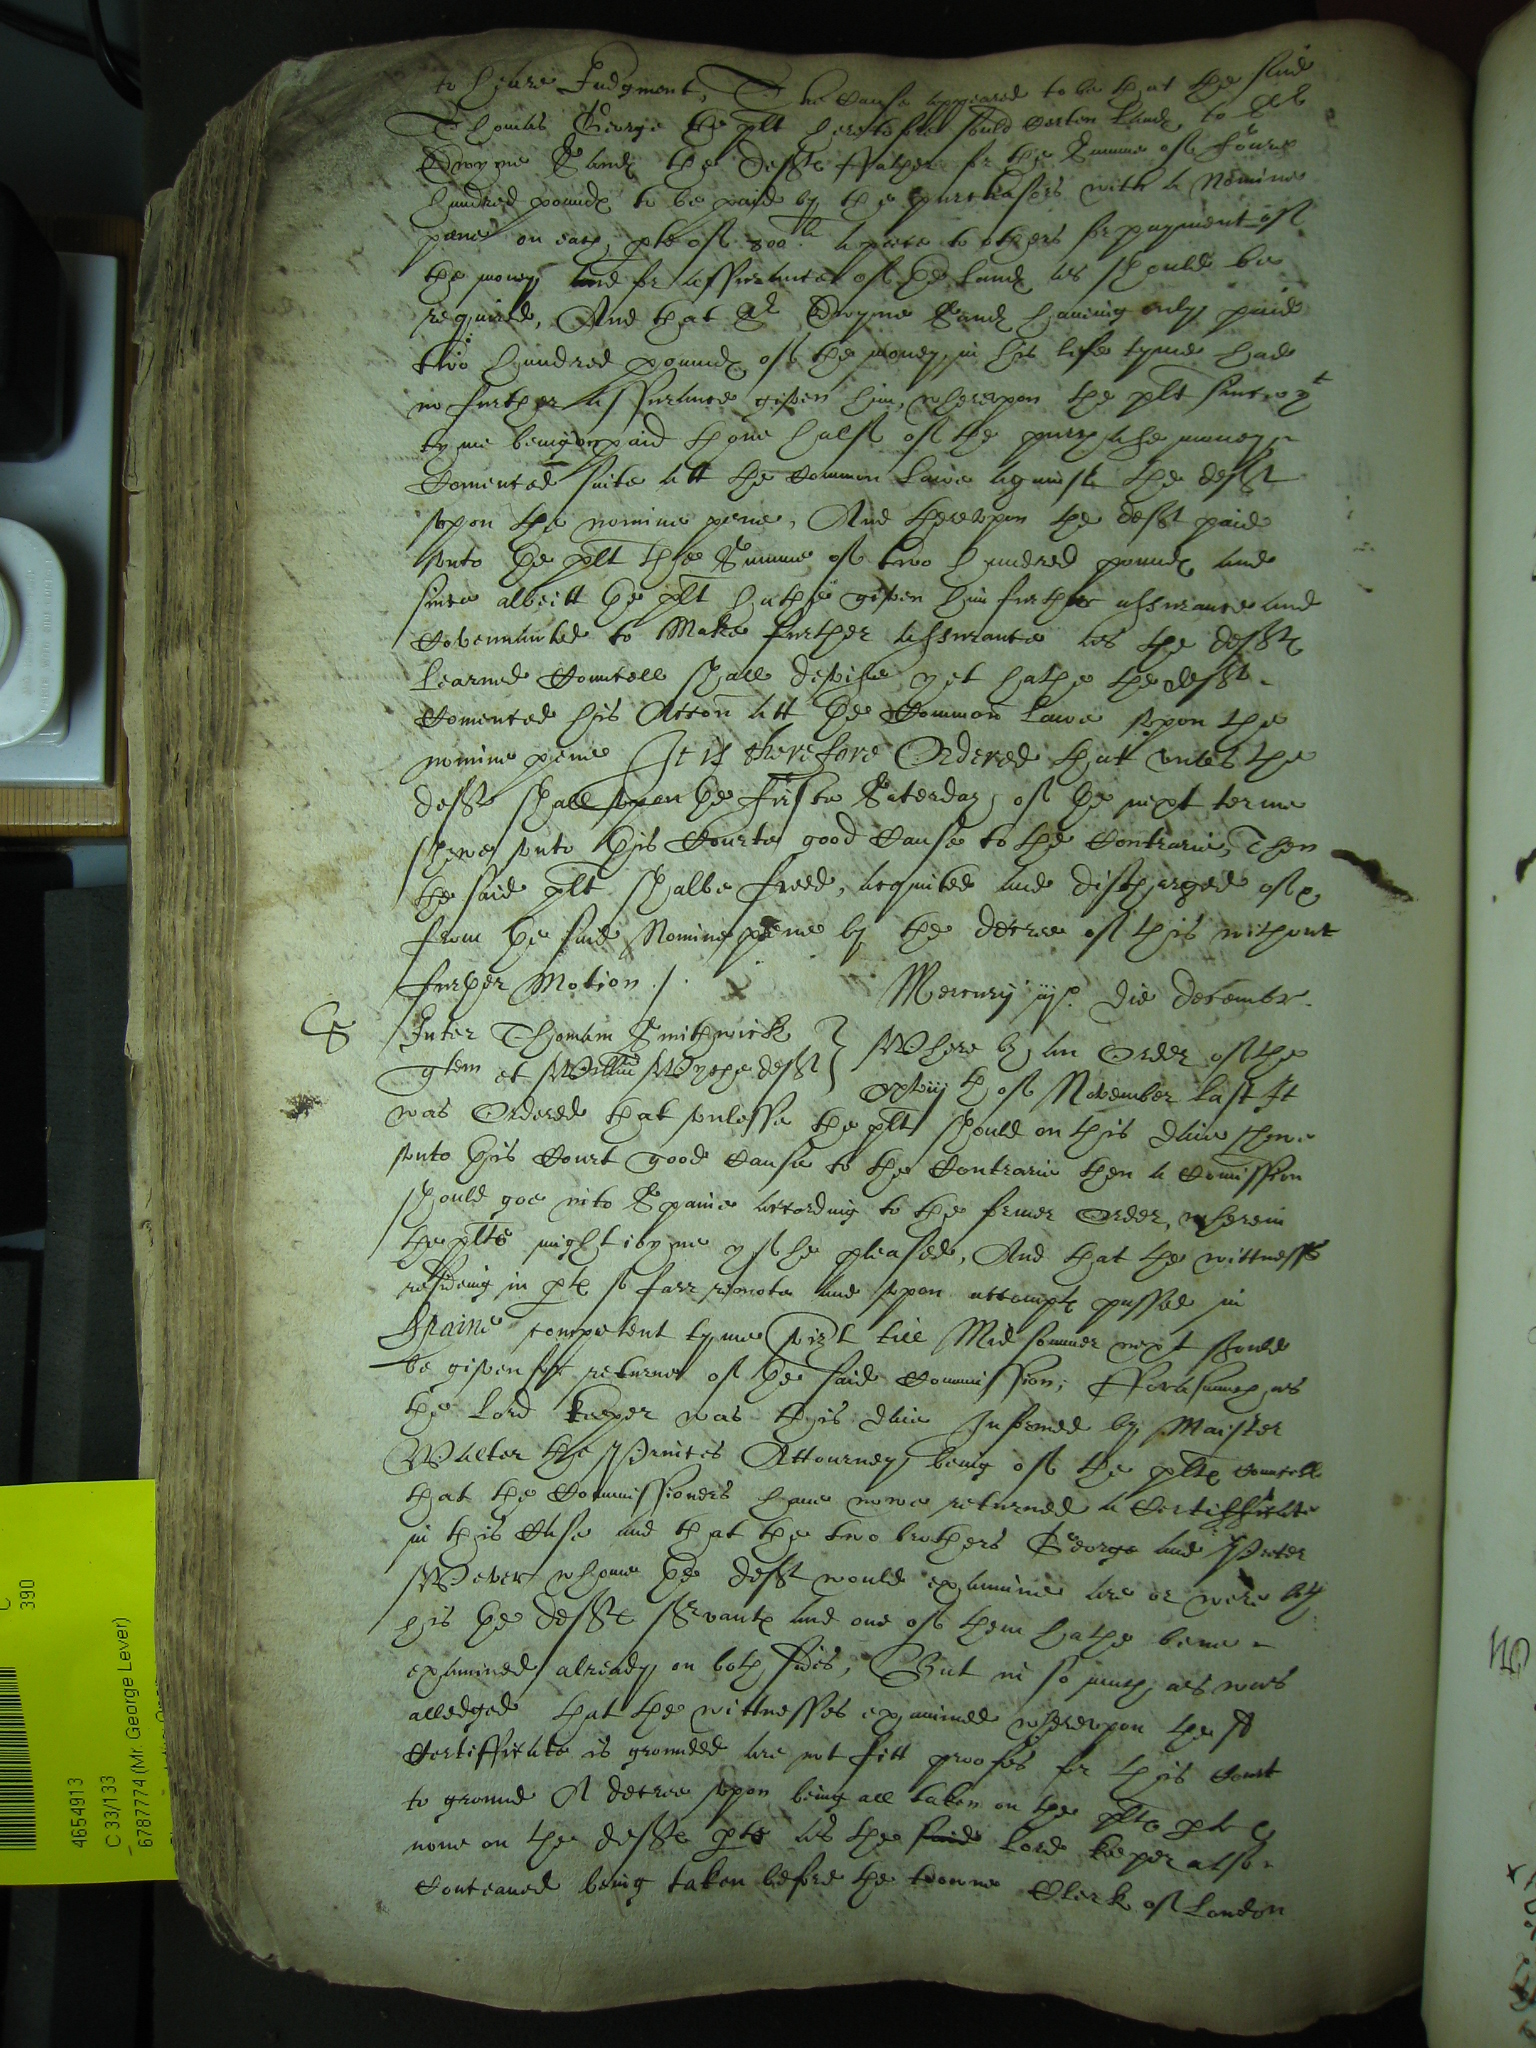 to heare Judgment, The cause appeared to be that the said
Thomas George the plt heretofore sould certen Landes to Sr
Edwyne Sandes the Defts Father for the Summe of foure
hundred poundes to be paid by the purchasors with a Nomine
pene on each pte of 800li a peece to others for payment of
the money and for assurance of the Landes as should be
required, And that Sr Edwyne Sandes having only paid
two hundred poundes of the money in his life tyme had
no further assurance given him, wherevpon the plt
tyme being vnpaid thone halfe of the purchase money
Comenced suite att the Common Lawe against the deft
vpon the nomine pene, And therevpon the deft paid
vnto the plt the Summe of two hundred poundes and
since albeitt the plt hathe given him further assurance and
Covenanted to Make further assurance as the defts
Learned Councell shall devise yet hathe the deft
Comenced his Accon att the Common Lawe vpon the
nomine pene It is therefore Ordered that vnles the
deft shall vpon the firste Saterday of the next terme
shewe vnto this Courte good cause to the Contrarie, Then
the said plt shalbe freed, acquited and discharged of &
from the said Nomine pene by the decree of this without
further Motion /.
Mercurij iijo die Decembr
S Inter Thomam Smithwick
qtem et Willm Wyche deft } Where by an Order of the
xxviijth of November Last It
was Ordered that vnlesse the plt should on this daie shewe
vnto this Court good cause to the Contrarie then a Comission
should goe into Spaine according to the former Order, wherein
the plts might ioyne yf he pleased, And that the wittnesses
resideing in ptes so farr remote and vpon attempts passed in
Spaine competent tyme vizt till Midsommer next should
be given for returne of the said Commission; Forasmuch as
the Lord Keeper was this daie Informed by Maister
Walter the Princes Attourney being of the plts Councell
that the Commissioners have nowe returned a Certifficate
in this Case and that the two brothers George and Peter
Wever whome the deft would examine are or were both
his the defts servantes and one of them hathe bene
examined already on both sides, But in so much as was
alledged that the wittnesses examined wherevpon the sd
Certifficate is grounded are not fitt proofes for this Court
to ground A decree vpon being all taken on the plts pte &
none on the defts pte as the said Lord Keeper also
Conceaved being taken before the towne Clerk of London
4654913
C 33/133
6787774 (Mr. George Lever)
C
390